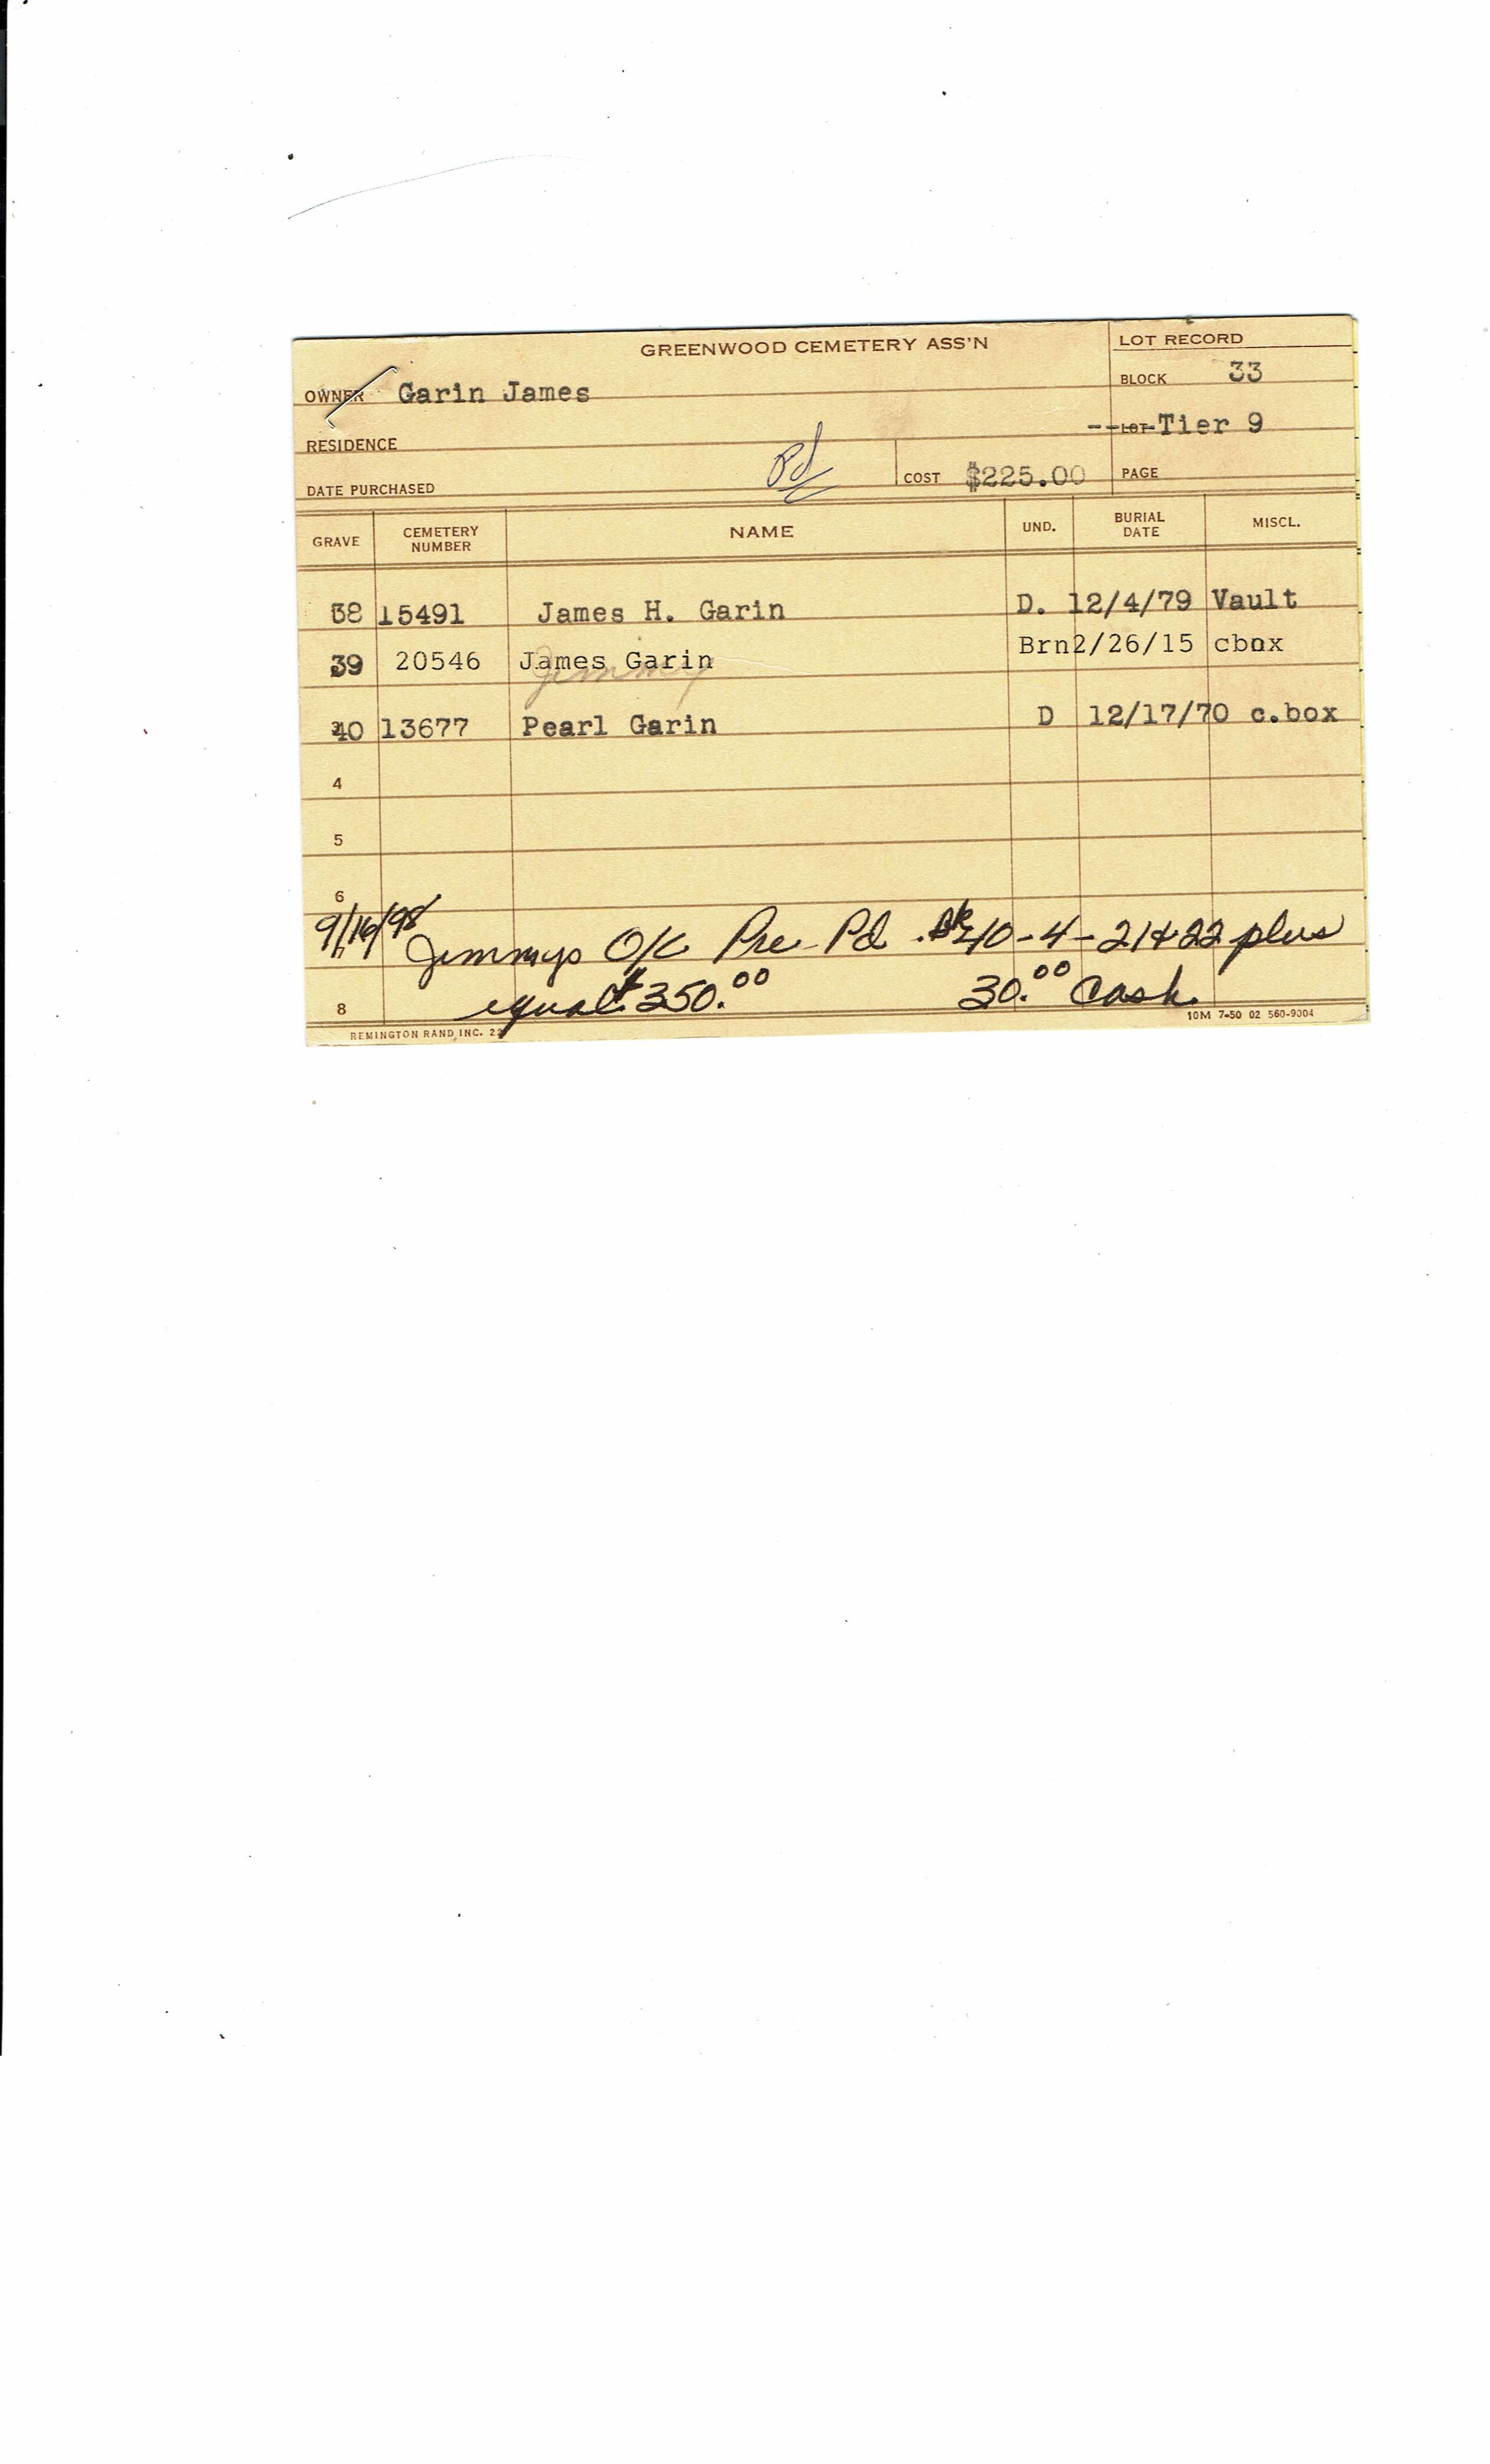 GREENWOOD CEMETERY ASS'N
LOT RECORD
OWNER Garin James
BLOCK 33
RESIDENCE
--LOT- Tier 9
DATE PURCHASED Pd COST $225.00 PAGE
GRAVE CEMETERY NUMBER NAME UND. BURIAL DATE MISCL.
38 15491 James H. Garin D. 12/4/79 Vault
39 20546 James Garin Brn 2/26/15 cbox
Jimmy
40 13677 Pearl Garin D 12/17/70 c.box
4
5
6
9/16/98 Jimmys O/C Pre-Pd. Bk 40-4-21&22 plus
8 equal $350.00 30.00 Cash.
REMINGTON RAND INC. 10M 7-50 02 560-9004